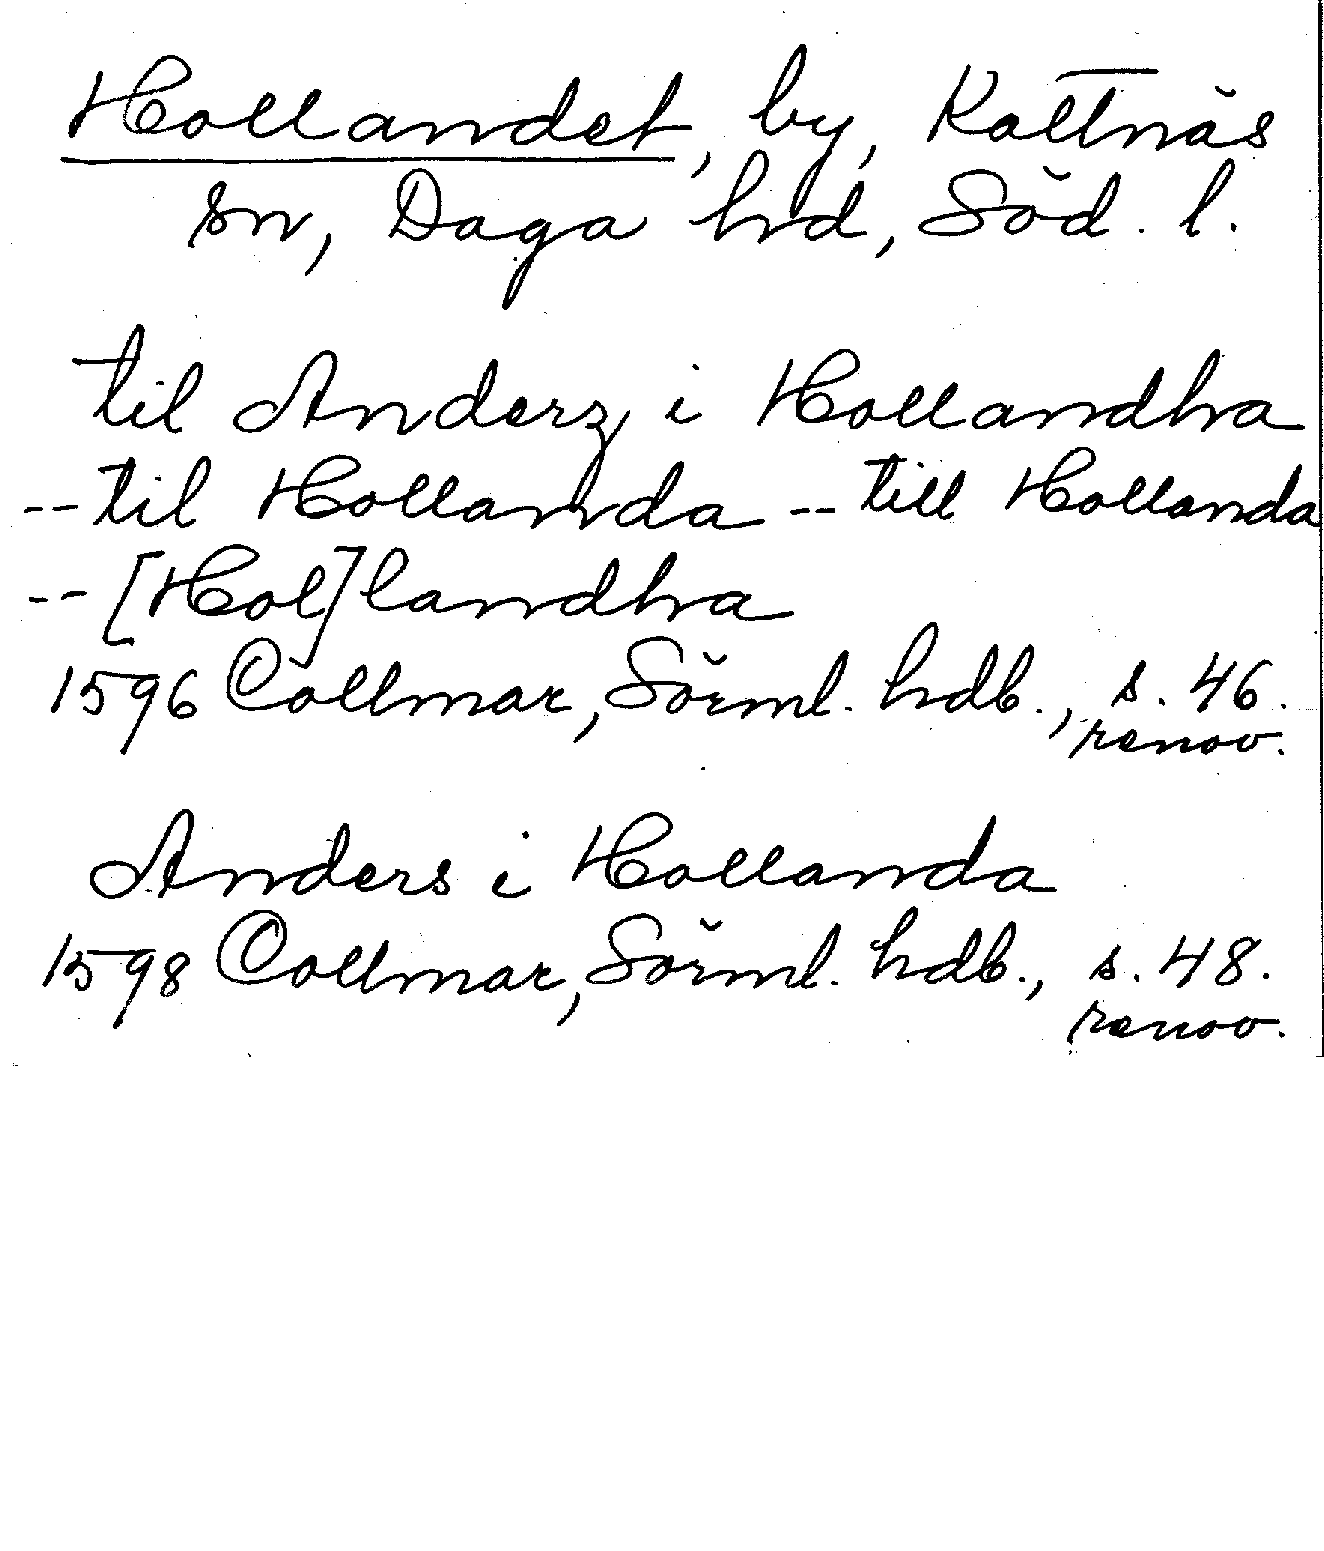 Hollandet, by, Kattnäs
sn, Daga hrd, Söd. l.
til Anderz i Hollandhra
-- til Hollanda -- till Hollanda
-- [Hol]landhra
1596 Collmar, Sörml. hdb., s. 46.
renov.
Anders i Hollanda
1598 Collmar, Sörml. hdb., s. 48.
renov.